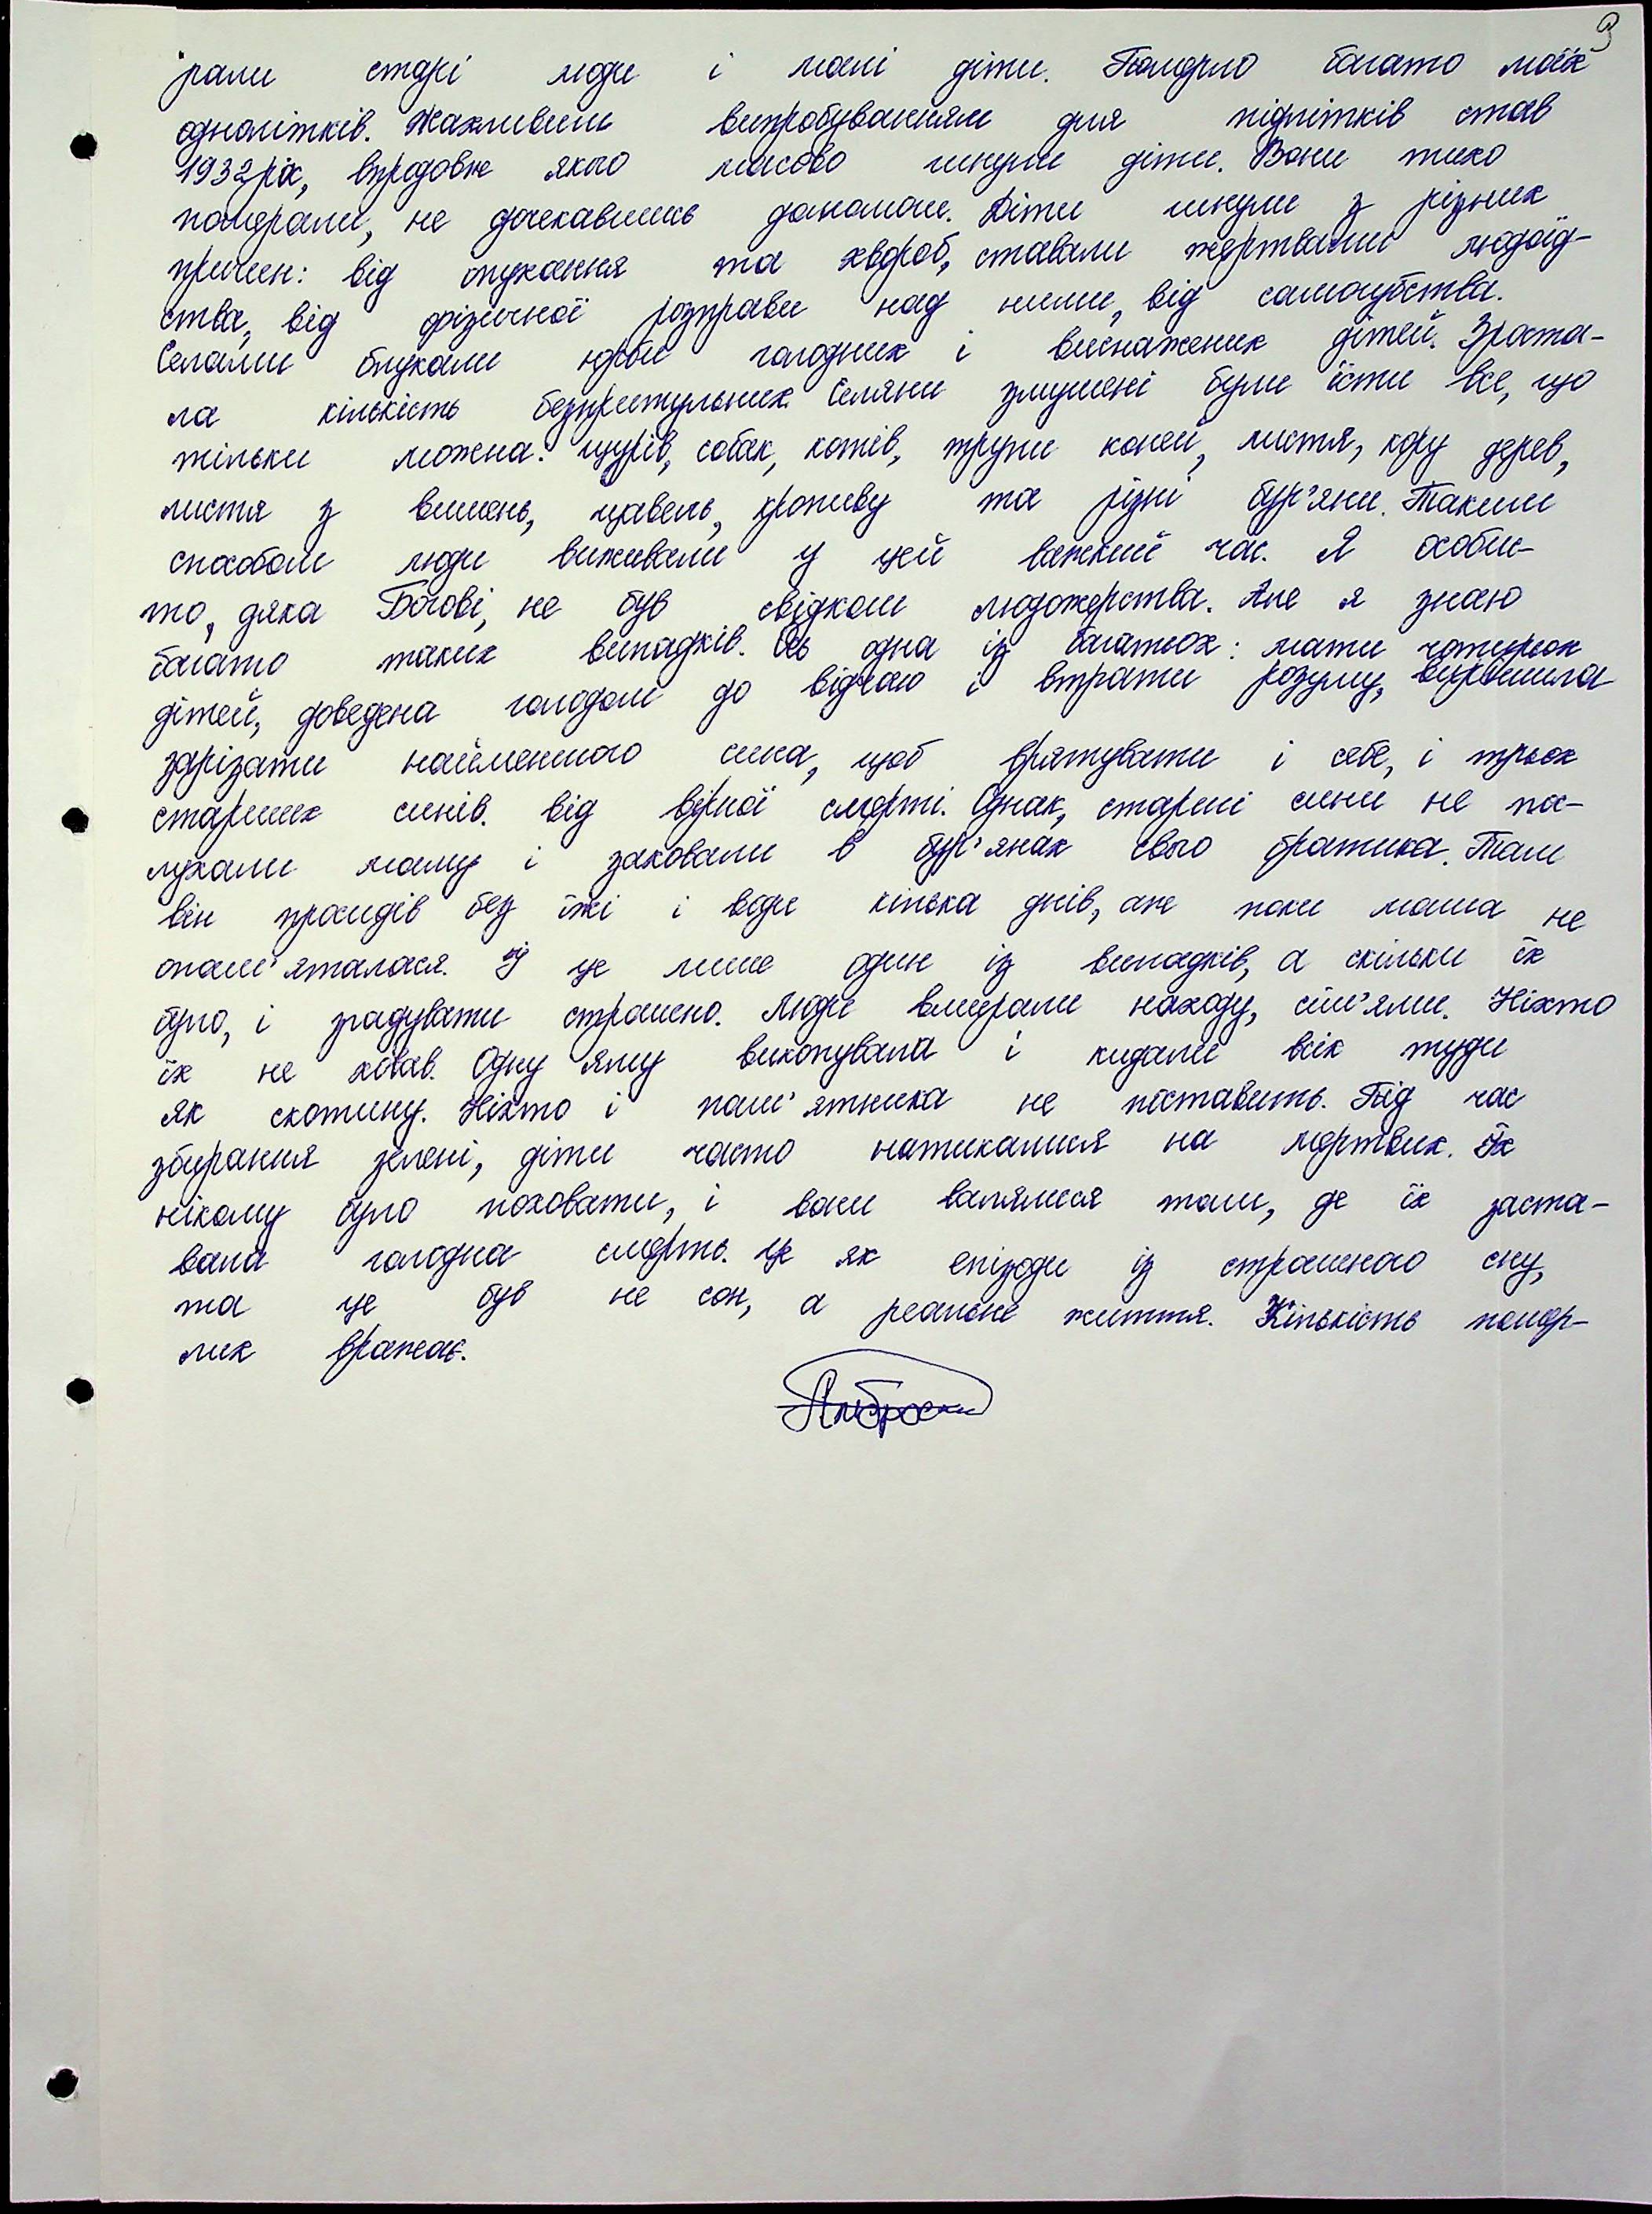 3
рали старі люди і малі діти. Померло багато моїх
однолітків. Жахливим випробуванням для підлітків став
1932 рік, впродовж якого масово гинули діти. Вони тихо
помирали, не дочекавшись допомоги. Діти гинули з різних
причин: від опухання та хвороб, ставали жертвами людоїд-
ства, від фізичної розправи над ними, від самогубства.
Селами блукали юрби голодних і виснажених дітей. Зроста-
ла кількість безпритульних. Селяни змушені були їсти все, що
тільки можна: щурів, собак, котів, трупи коней, листя, кору дерев,
листя з вишень, щавель, кропиву та різні бур'яни. Таким
способом люди виживали у цей важкий час. Я особис-
то, дяка Богові, не був свідком людожерства. Але я знаю
багато таких випадків. Ось одна із багатьох: мати чотирьох
дітей, доведена голодом до відчаю і втрати розуму, вирішила
зарізати найменшого сина, щоб врятувати і себе, і трьох
старших синів від вірної смерті. Однак, старші сини не по-
слухали маму і заховали в бур'янах свого братика. Там
він просидів без їжі і води кілька днів, аж поки мама не
опам'яталася. І це лише один із випадків, а скільки їх
було, і згадувати страшно. Люди вмирали находу, сім'ями. Ніхто
їх не ховав. Одну яму викопувала і кидали всіх туди
як скотину. Ніхто і пам'ятника не поставить. Під час
збирання зелені, діти часто натикалися на мертвих. Їх
нікому було поховати, і вони валялися там, де їх заста-
вала голодна смерть. Це як епізоди із страшного сну,
та це був не сон, а реальне життя. Кількість помер-
лих вражає.